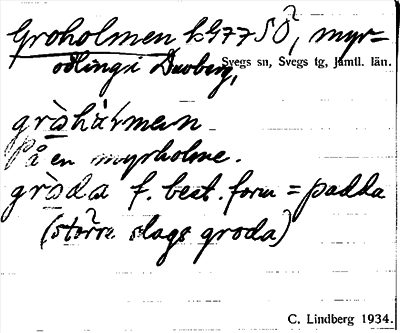 Groholmen bl 977 SÖ, myr-
odling i Duvberg,
Svegs sn, Svegs tg, Jämtl. län.
gròhàrmen
På en myrholme.
gròda f. best. form = padda
(större slags groda)
C. Lindberg 1934.